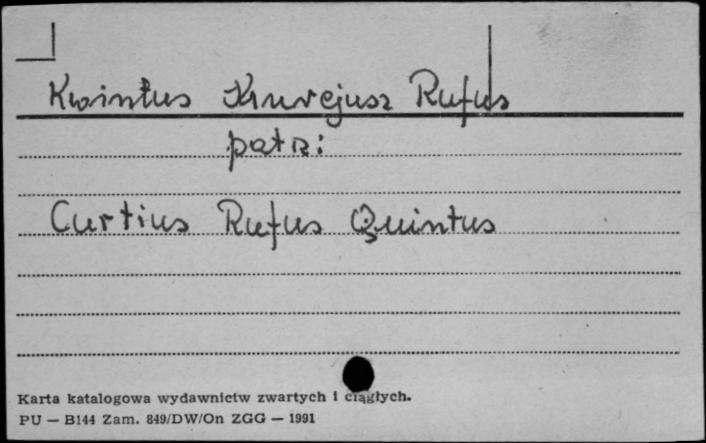 Kwintus Kurcjusz Rufus
patrz:
Curtius Rufus Quintus
Karta katalogowa wydawnictw zwartych i ciągłych.
PU — B144 Zam. 849/DW/On ZGG — 1991